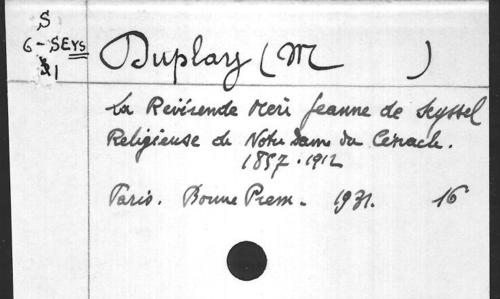 S
6-SEYS
31
Duplay (M )
La Révérende Mère Jeanne de Seyssel
Religieuse de Notre Dame du Cénacle.
1857.1912
Paris. Bonne Press. 1931. 16